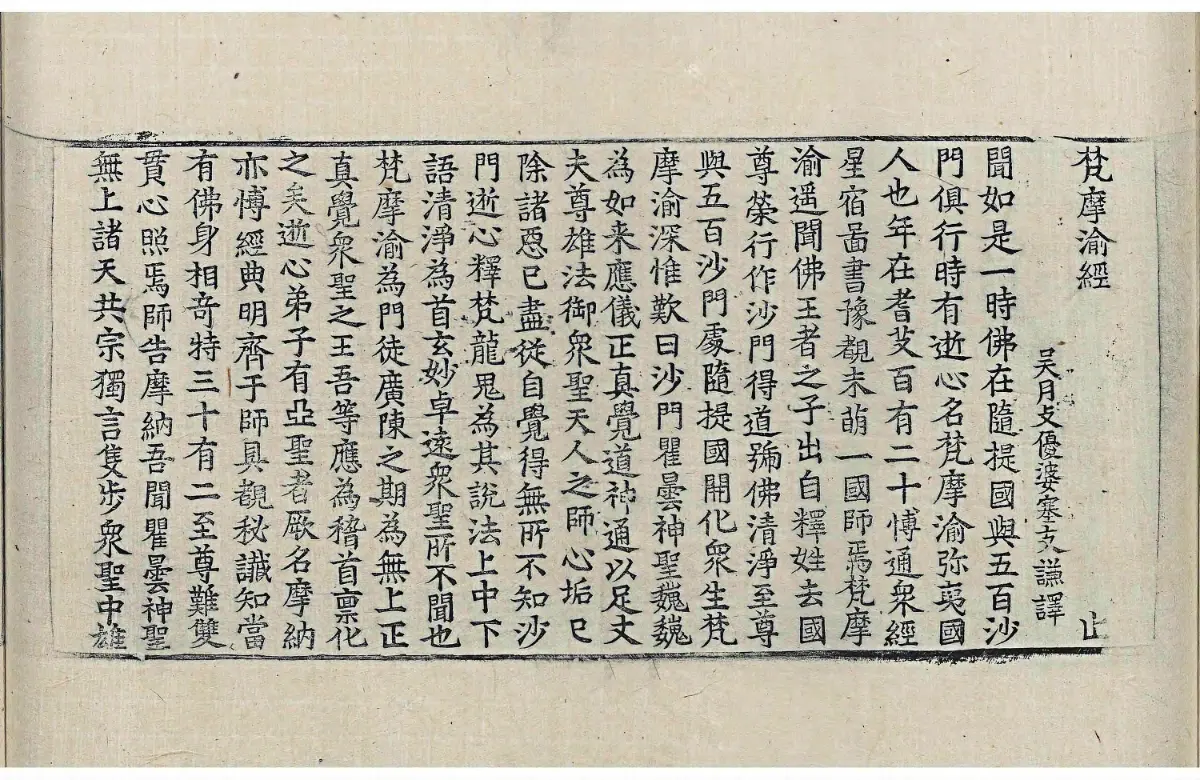 梵摩渝經 止
吴月支優婆塞支謙譯
聞如是一時佛在隨提國與五百沙
門俱行時有逝心名梵摩渝弥夷國
人也年在耆艾百有二十慱通衆經
星宿啚書豫覩未萌一國師焉梵摩
渝遥聞佛王者之子出自釋姓去國
尊榮行作沙門得道號佛清淨至尊
與五百沙門處隨提國開化衆生梵
摩渝深惟歎曰沙門瞿曇神聖魏魏
為如来應儀正真覺道神通以足丈
夫尊雄法御衆聖天人之師心垢已
除諸惡已盡從自覺得無所不知沙
門逝心釋梵龍鬼為其説法上中下
語清淨為首玄妙卓遠衆聖所不聞也
梵摩渝為門徒廣陳之期為無上正
真覺衆聖之王吾等應為稽首禀化
之矣逝心弟子有亞聖者厥名摩納
亦慱經典明齊于師具覩秘讖知當
有佛身相竒特三十有二至尊難雙
貫心照焉師告摩納吾聞瞿曇神聖
無上諸天共宗獨言隻步衆聖中雄